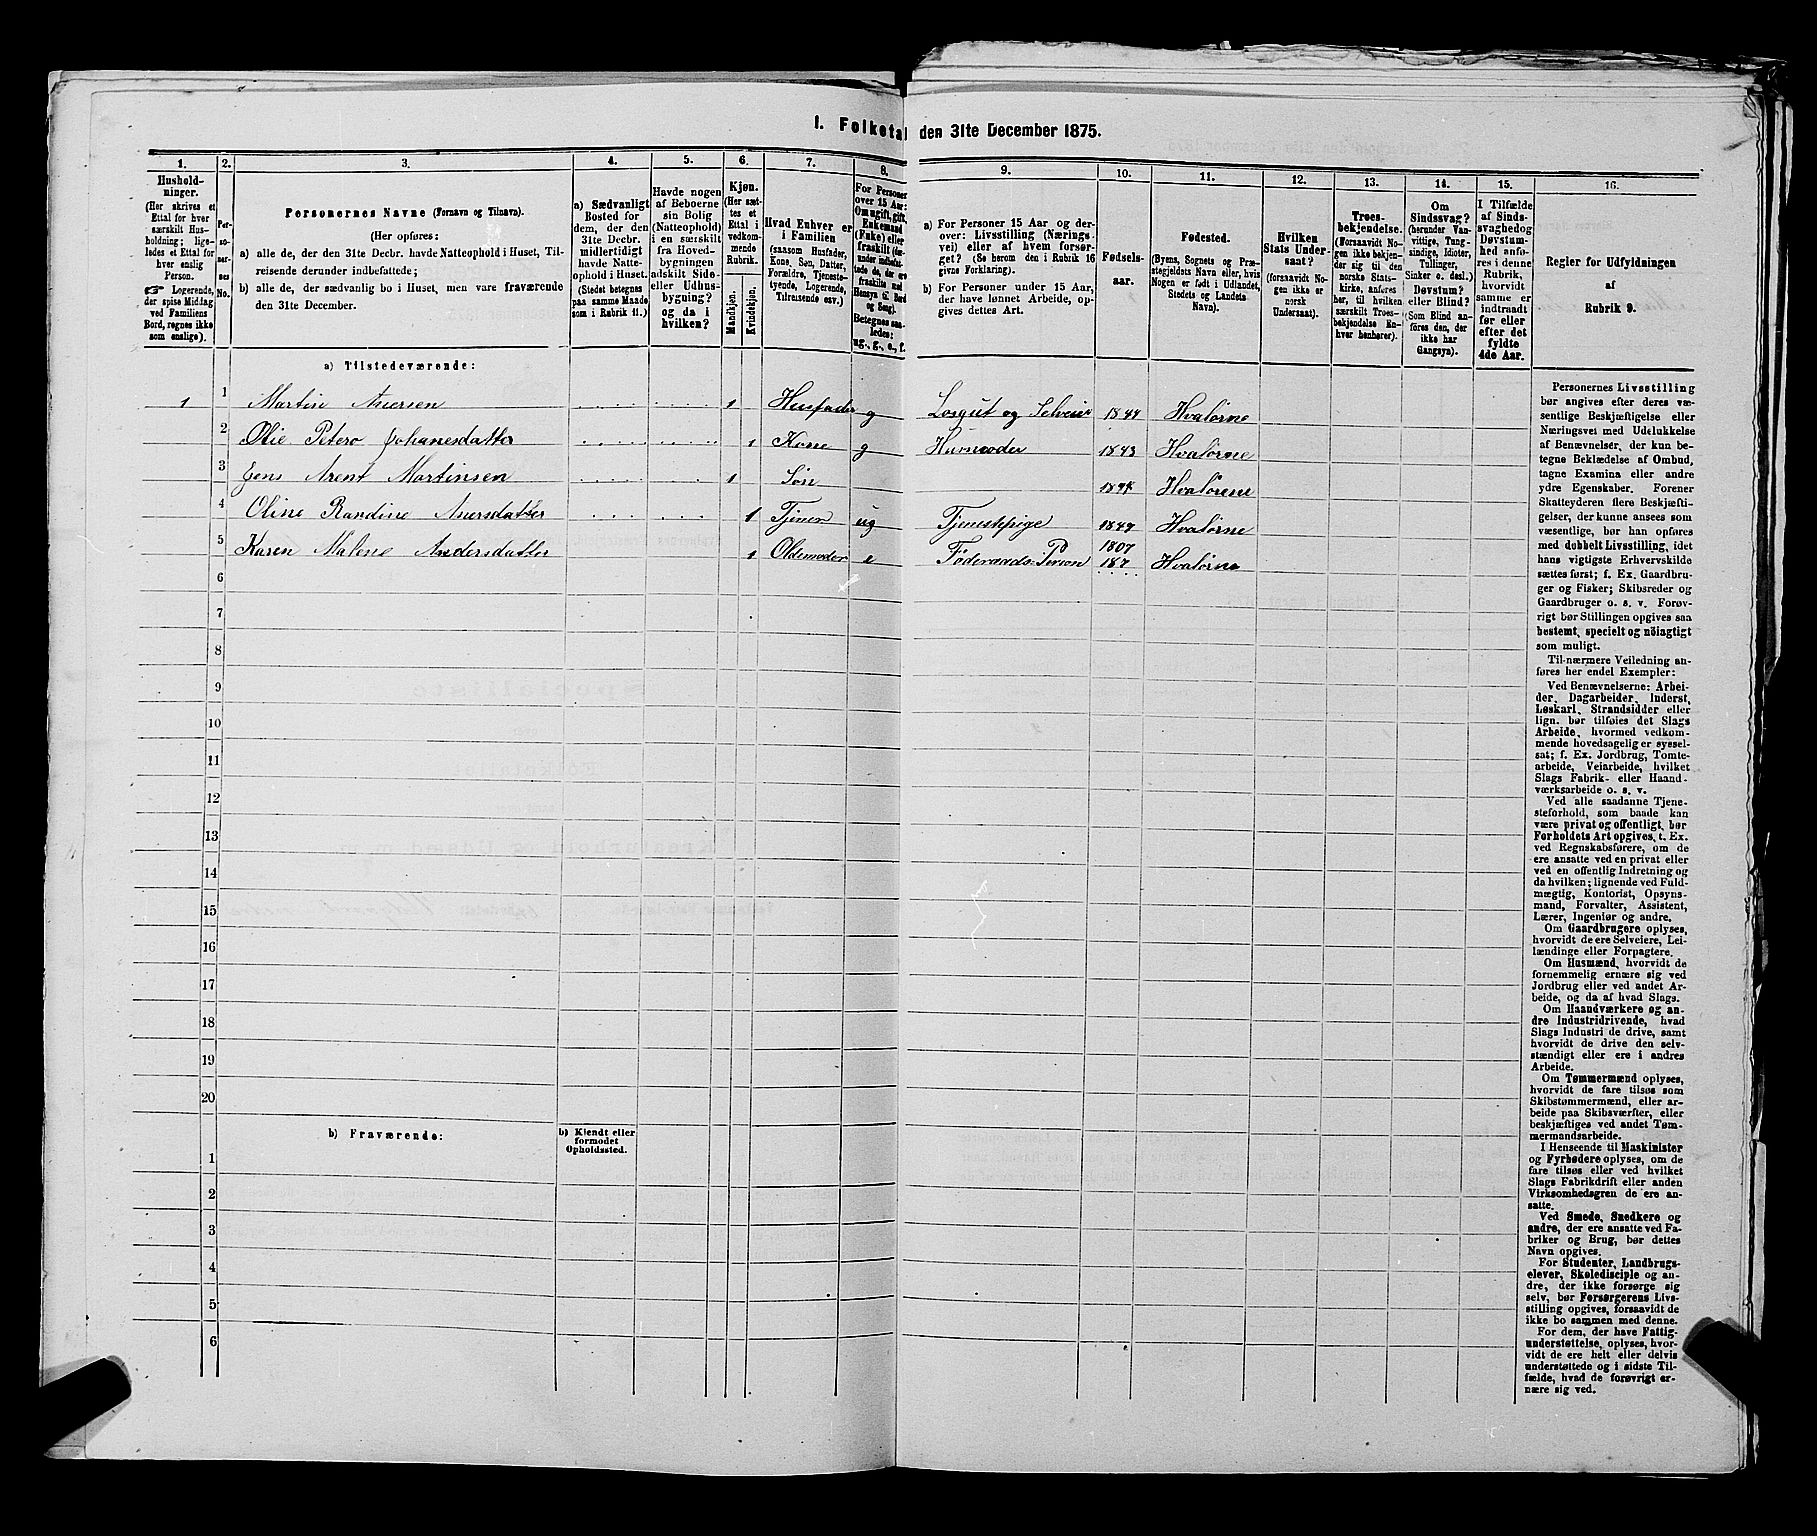 I. Folketal den 31te December 1875.
1. 2. 3. 4. 5. 6. 7. 8. 9. 10. 11. 12. 13. 14. 15. 16.
Hushold-
ninger.
(Her skrives et
Ettal for hver
særskilt Hus-
holdning; lige-
ledes et Ettal for
hver enslig
Person.
☞ Logerende,
der spise Middag
ved Familiens
Bord, regnes ikke
som enslige).
Per-
so-
ner-
nes
No.
Personernes Navne (Fornavn og Tilnavn).
(Her opføres:
a) alle de, der den 31te Decbr. havde Natteophold i Huset, Til-
reisende derunder indbefattede;
b) alle de, der sædvanlig bo i Huset, men vare fraværende
den 31te December.
a) Sædvanligt
Bosted for
dem, der den
31te Decbr.
midlertidigt
havde Natte-
ophold i Huset.
(Stedet betegnes
paa samme Maade
som i Rubrik 11.)
Havde nogen
af Beboerne
sin Bolig
(Natteophold)
i en særskilt
fra Hoved-
bygningen
adskilt Side-
eller Udhus-
bygning?
og da i
hvilken?
Kjøn.
(Her sæt-
tes et
Ettal i
vedkom-
mende
Rubrik.
Mandkjøn.
Kvindekjøn.
Hvad Enhver er
i Familien
(saasom Husfader,
Kone, Søn, Datter,
Forældre, Tjeneste-
tyende, Logerende,
Tilreisende osv.)
For Personer
over 15 Aar:
Om ugift, gift,
Enkemand
(Enke) eller
fraskilt
Betegnes saa-
ledes:
ug., g., e., f.
a) For Personer 15 Aar og der-
over: Livsstilling (Nærings
vei) eller af hvem forsør-
get? (Se herom den i Rubrik 16
givne Forklaring).
b) For Personer under 15 Aar,
der have lønnet Arbeide, op-
gives dettes Art.
Fødsels-
aar.
Fødested.
(Byens, Sognets og Præ-
stegjeldets Navn eller, hvis
Nogen er født i Udlandet,
Stedets og Landets
Navn).
Hvilken
Stats Under-
saat?
(forsaavidt No-
gen ikke er
norsk
Undersaat).
Troes-
bekjendelse.
(Forsaavidt No-
gen ikke bekjen-
der sig til den
norske Stats-
kirke, anføres
her, til hvilken
særskilt Troes-
bekjendelse En-
hver henhører).
Om
Sindssvag?
(herunder Van-
vittige, Tung-
sindige, Idioter,
Tullinger,
Sinker o. desl.)
Døvstum?
eller Blind?
(Som Blind an-
føres den, der
ikke har
Gangsyn).
I Tilfælde
af Sinds-
svaghed og
Døvstum-
hed anfø-
res i denne
Rubrik,
hvorvidt
samme er
indtraadt
før eller
efter det
fyldte
4de Aar.
Regler for Udfyldningen
af
Rubrik 9.
a) Tilstedeværende:
1 1 Martin Anersen 1 Husfader g Losgut og Selveier 1844 Hvalørne
2 Olie Petero Johanesdatter 1 Kone g Husmoder 1843 Hvalørne
3 Jens Arent Martinsen 1 Søn Hvalørene
4 Oline Randine Anersdatter 1 Tjener ug Tjenestepige 1849 Hvalørne
5 Karen Malene Andersdatter 1 Oldemoder e Føderaads-Person 1807 187 Hvalørne
6
7
8
9
10
11
12
13
14
15
16
17
18
19
20
b) Fraværende:
b) Kjendt eller
formodet
Opholdssted.
1
2
3
4
5
6
Personernes Livsstilling
bør angives efter deres væ-
sentlige Beskjæftigelse eller
Næringsvei med Udelukkelse
af Benævnelser, der kun be-
tegne Beklædelse af Ombud,
tagne Examina eller andre
ydre Egenskaber. Forener
Skatteyderen flere Beskjæfti-
gelser, der kunne ansees som
væsentlige, bør han opføres
med dobbelt Livsstilling, idet
hans vigtigste Erhvervskilde
sættes først; f. Ex. Gaardbru-
ger og Fisker; Skibsreder og
Gaardbruger o. s. v. Forøv-
rigt bør Stillingen opgives saa
bestemt, specielt og nøiagtigt
som muligt.
Til nærmere Veiledning an-
føres her endel Exempler:
Ved Benævnelserne: Arbei-
der, Dagarbeider, Inderst,
Løskarl, Strandsidder eller
lign. bør tilføies det Slags
Arbeide, hvormed vedkom-
mende hovedsagelig er syssel-
sat; f. Ex. Jordbrug, Tomte-
arbeide, Veiarbeide, hvilket
Slags Fabrik- eller Haand-
værksarbeide o. s. v.
Ved alle saadanne Tjene-
steforhold, som baade kan
være privat og offentligt, bør
Forholdets Art opgives, t. Ex.
ved Regnskabsførere, om de
ere ansatte ved en privat eller
ved en offentlig Indretning og
da hvilken; lignende ved Fuld-
mægtig, Kontorist, Opsyns-
mand, Forvalter, Assistent,
Lærer, Ingeniør og andre.
Om Gaardbrugere oplyses,
hvorvidt de ere Selveiere, Lei-
lændinge eller Forpagtere.
Om Husmænd, hvorvidt de
fornemmelig ernære sig ved
Jordbrug eller ved andet Ar-
beide, og da af hvad Slags.
Om Haandværkere og an-
dre Industridrivende, hvad
Slags Industri de drive, samt
hvorvidt de drive den selv-
stændigt eller ere i andres
Arbeide.
Om Tømmermænd oplyses,
hvorvidt de fare tilsøs som
Skibstømmermænd, eller ar-
beide paa Skibsværfter, eller
beskjæftiges ved andet Tøm-
mermandsarbeide.
I Henseende til Maskinister
og Fyrbødere oplyses, om de
fare tilsøs eller ved hvilket
Slags Fabrikdrift eller anden
Virksomhedsgren de ere an-
satte.
Ved Smede, Snedkere og
andre, der ere ansatte ved Fa-
briker og Brug, bør dettes
Navn opgives.
For Studenter, Landbrugs-
elever, Skoledisciple og an-
dre, der ikke forsørge sig
selv, bør Forsørgerens Livs-
stilling opgives, forsaavidt de
ikke bo sammen med denne.
For dem, der have Fattig-
understøttelse, oplyses, hvor-
vidt de ere helt eller delvis
understøttede og i sidste Til-
fælde, hvad de forøvrigt er-
nære sig ved.